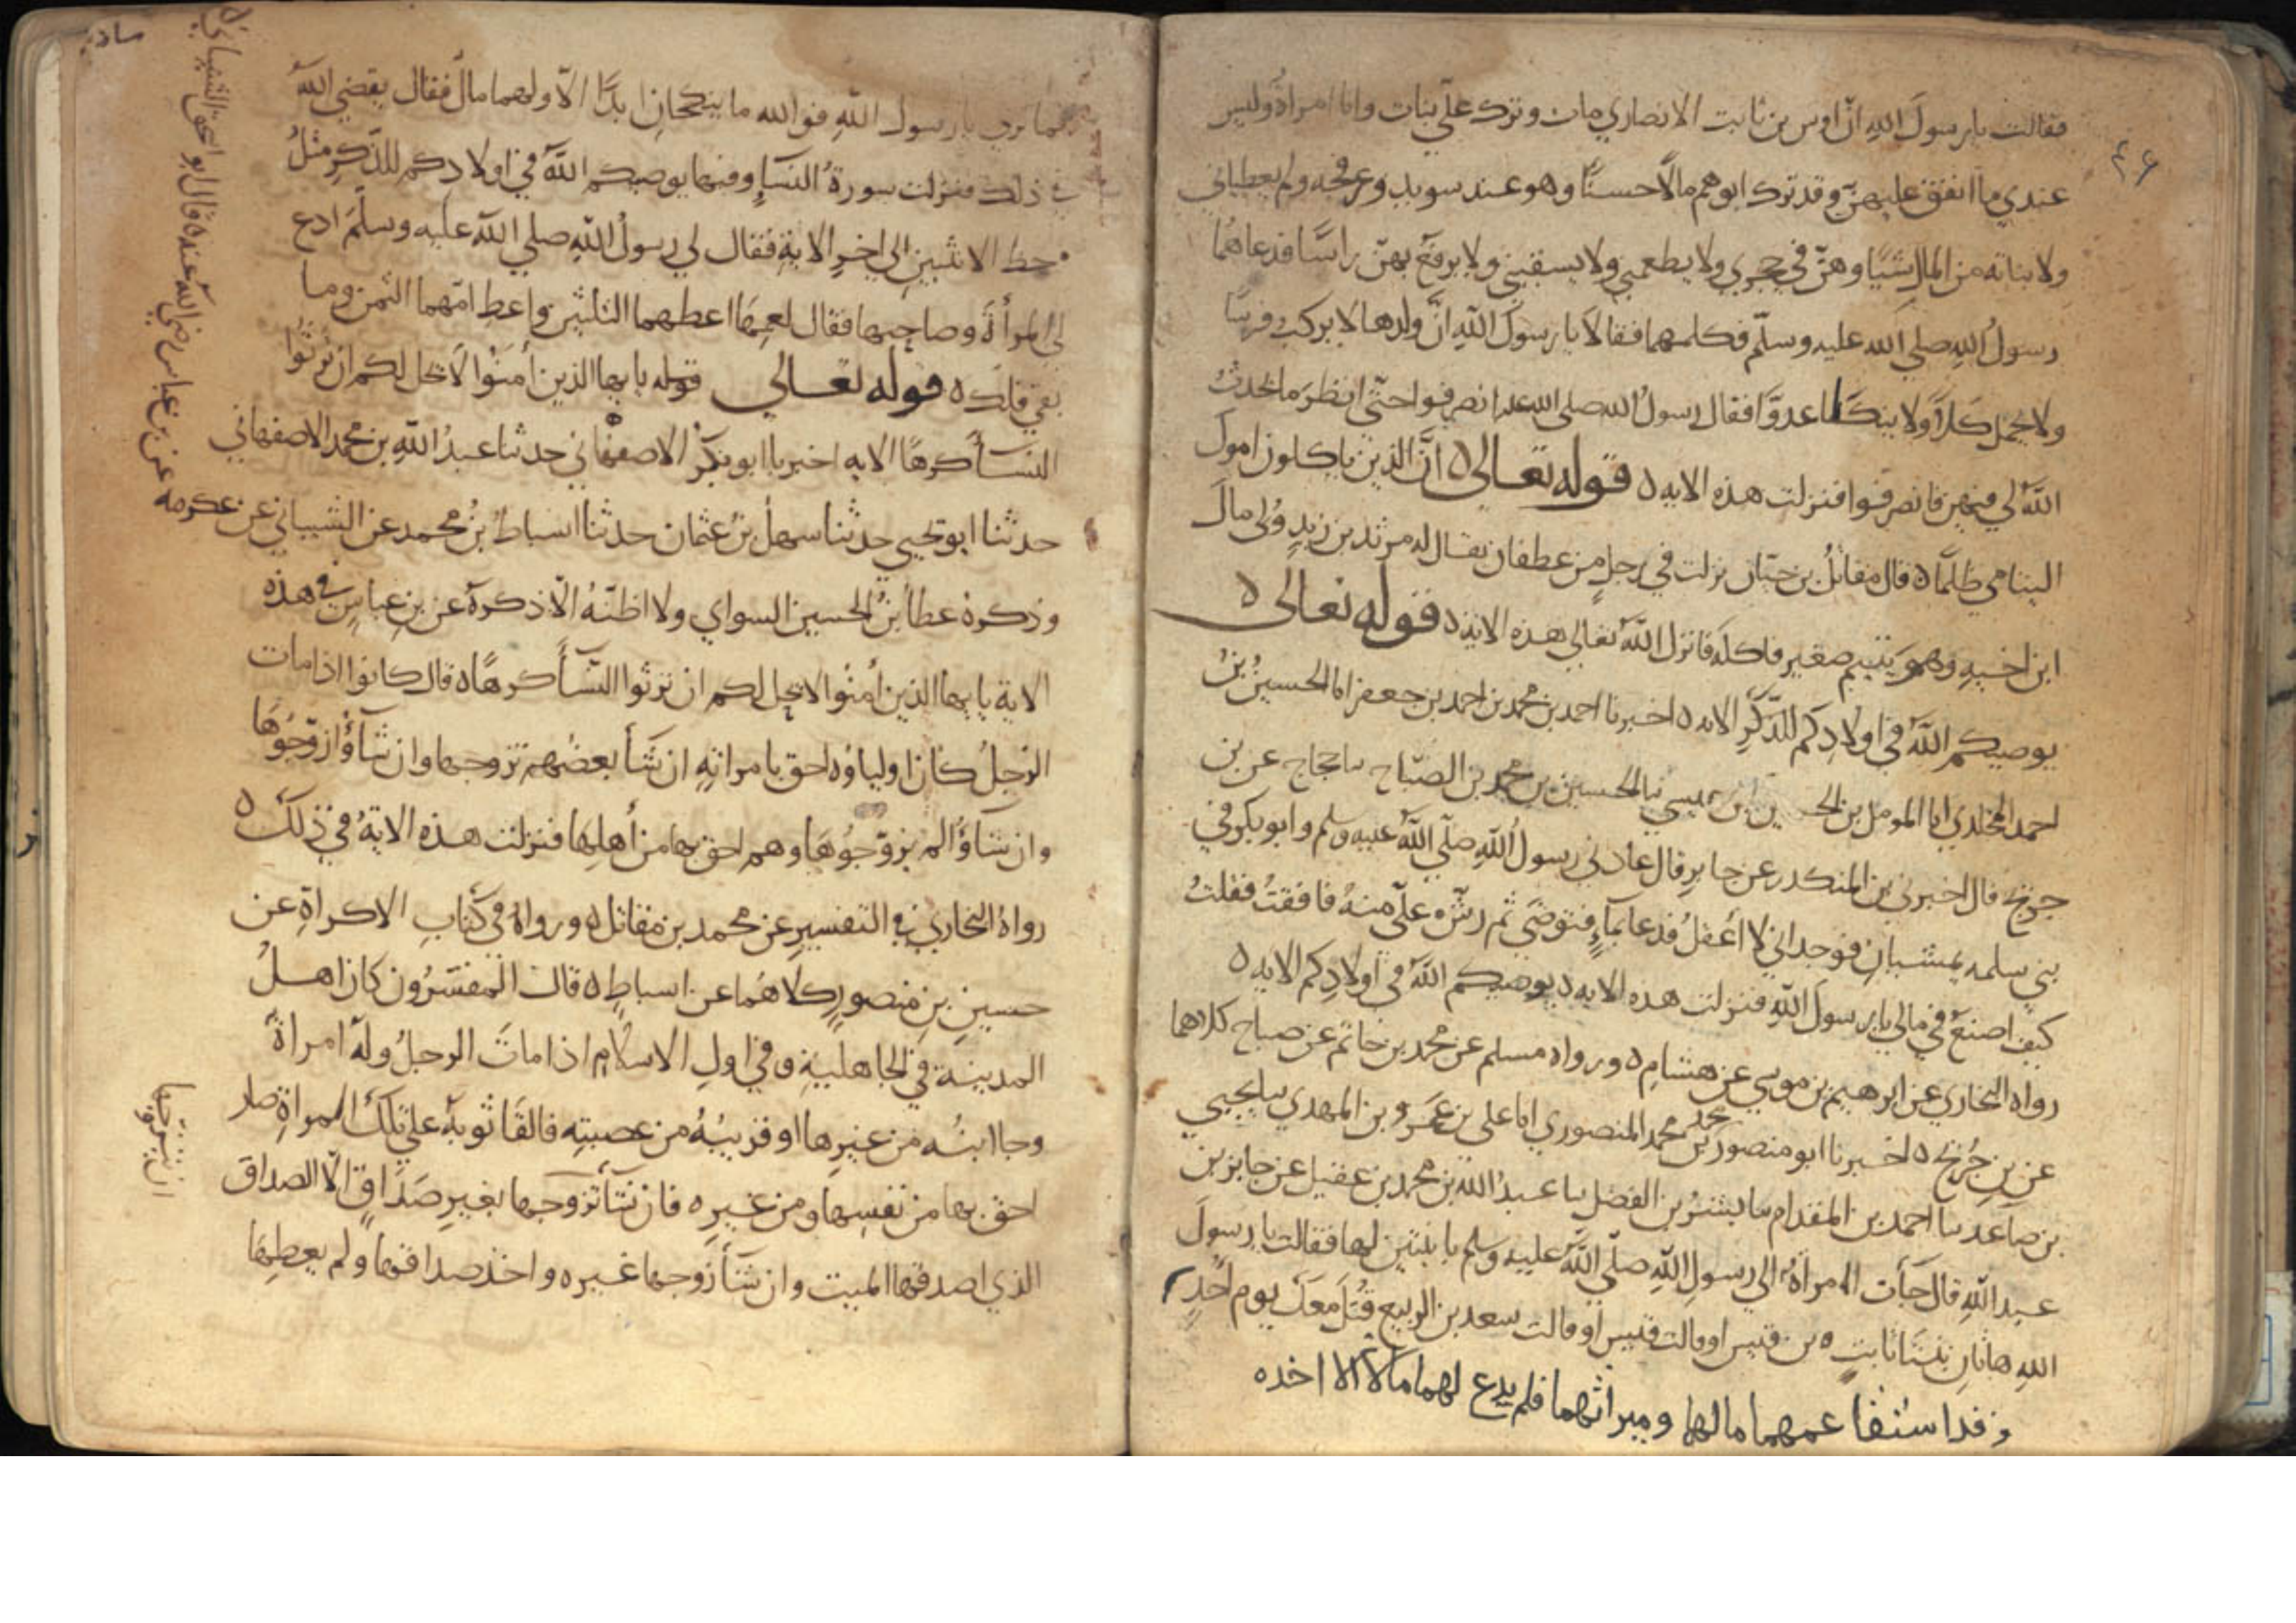 فقالت يا رسولَ اللهِ انّ اوس بن ثابت الانصاري مات وترك عليّ بنات وانا امراةٌ وليس
عندي ما انفق عليهنّ وقد ترك ابوهم مالًا حسنًا وهو عند سويد وعرفجه ولم يعطياني
ولا بناته من المال شيًا وهنّ في حجري ولا يطعمني ولا يسقيني ولا يرفعَ بهنّ راسًا فدعاهما
رسولُ اللهِ صلي الله عليه وسلّم فكلمهما فقالا يا رسولَ اللهِ انَّ ولدها لا يركب فرسًا
ولا يحمل كَلًّا ولا ينكَأ عدوًّا فقال رسولُ الله صلى الله عليه انصرفوا حتّى انظرَ ما يحدثُ
اللهُ لي فيهن فانصرفوا فنزلت هذه الايه ٥ قوله تعالى ٥ انَّ الذين ياكلون اموال
اليتامي ظلمًا ٥ قال مقاتلُ بن حيّان نزلت في رجلٍ من غطفان يقال له مرثد بن زيدٍ وُلي مالَ
ابن اخيهِ وهو يتيم صغير فاكله فانزل اللهُ تعالي هذه الايه ٥ قوله تعالى ٥
يوصيكم اللهُ في اولادِكم للذَّكَرِ الايه ٥ اخبرنا احمد بن محمد بن احمد بن جعفر انا الحسينُ بنُ
احمد المخلدي انا المومل بن الحسين بن عيسي نا الحسين بن محمد بن الصبّاح نا حجاج عن بن
جريج قال اخبرني بن المنكدر عن جابرٍ قال عادني رسولُ اللهِ صلّي اللهُ عليه وسلم وابو بكر في
بني سلمه يمشيانِ فوجداني لا اعقلُ فدعا بمآءٍ فتوضي ثم رشّ علىّ منهُ فافقتُ فقلتُ
كيف اصنعُ في مالي يا رسولَ اللهِ فنزلت هذه الايه ٥ يوصيكم اللهُ في اولادِكم الايه ٥
رواه البخاري عن ابرهيم بن موسي عن هشامٍ ٥ ورواه مسلم عن محمد بن حاتم عن حجاج كلاهما
عن بن جُريج ٥ اخبرنا ابو منصور بن محمد المنصوري انا علي بن عمر بن المهدي نا يحيي
بن صاعد نا احمد بن المقدام نا بشرُ بن الفضل نا عبدُ الله بن محمد بن عقيل عن جابر بن
عبد اللهِ قال جآت امراةٌ الي رسولِ اللهِ صلّي اللهُ عليه وسلم بابنتين لها فقالت يا رسولَ
اللهِ هاتانِ بنتا ثابتِ بن قيس او قالت سعد بن الربيع قُتلَ معكَ يوم اُحدٍ
وقد استفا عمهما مالهما وميراثهما فلم يدع لهما مالًا الا اخذه
فما تري يا رسول اللهِ فوالله ما ينكحانِ ابدًا الّا ولهما مالٌ فقال يقضي اللهُ
في ذلك فنزلت سورةُ النسآءِ وفيها يوصيكم اللهُ في اولادِكم للذّكرِ مثلُ
حظ الانثيينِ الي اخرِ الايةِ فقال لي رسولُ اللهِ صلي الله عليه وسلّمَ ادع
لي المرأةَ وصاحبها فقال لعمها اعطهما الثلثين واعطِ امّهما الثمن وما
بقي فلك ٥ قوله تعالي قوله يايها الذين اَمَنُوا لا يحل لكم ان ترثُوا
النسآ كرهًا الايه اخبرنا ابو بكرٍ الاصفهاني حدثنا عبدُ اللهِ بن محمد الاصفهاني
حدثنا ابو يحيي حدثنا سهلُ بنُ عثمان حدثنا اسباطُ بنُ محمد عن الشيباني عن عكرمه
وذكره عطا بنُ الحسين السواي ولا اظنّهُ الّا ذكره عن بن عباسٍ في هذه
الاية يايها الذين اَمنُوا لا يحل لكم ان ترثوا النّسآ كرهًا ٥ قال كانوا اذا مات
الرّجلُ كان اولياوه احق بامراتِهِ ان شَآ بعضُهم تزوجها وان شآؤُا زوّجُوهَا
وان شاؤُا لم يزوّجُوهَا وهم احق بها من أهلِها فنزلت هذه الايةُ في ذلكَ ٥
رواهُ البخاري في التفسيرِ عن محمد بن مقاتل ٥ ورواهُ في كتابِ الاكراهِ عن
حسينِ بنِ منصورٍ كلاهُما عن اسباطٍ ٥ قال المفسّرُون كان اهلُ
المدينة في الجاهليةِ وفي اولِ الاسلامِ اذا ماتَ الرجلُ وله امراةٌ
وجا ابنُه من غيرِها او قريبُهُ من عصبتِه فالقَا ثوبهُ علي تلك المراةِ صار
احق بها من نفسِها ومن غيرِه ٥ فان شَآ تزوجها بغيرِ صَدَاقٍ الّا الصداق
الذي اصدقها الميت وان شَآ زوجها غيره واخذ صداقها ولم يعطِها
عن بن عباس رضي الله عنه قال ابو اسحق الشيباني